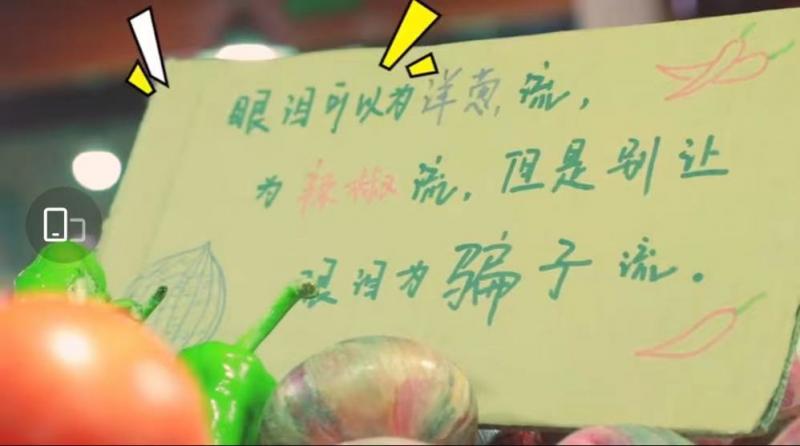 眼泪可以为洋葱流，
为辣椒流，但是别让
眼泪为骗子流。